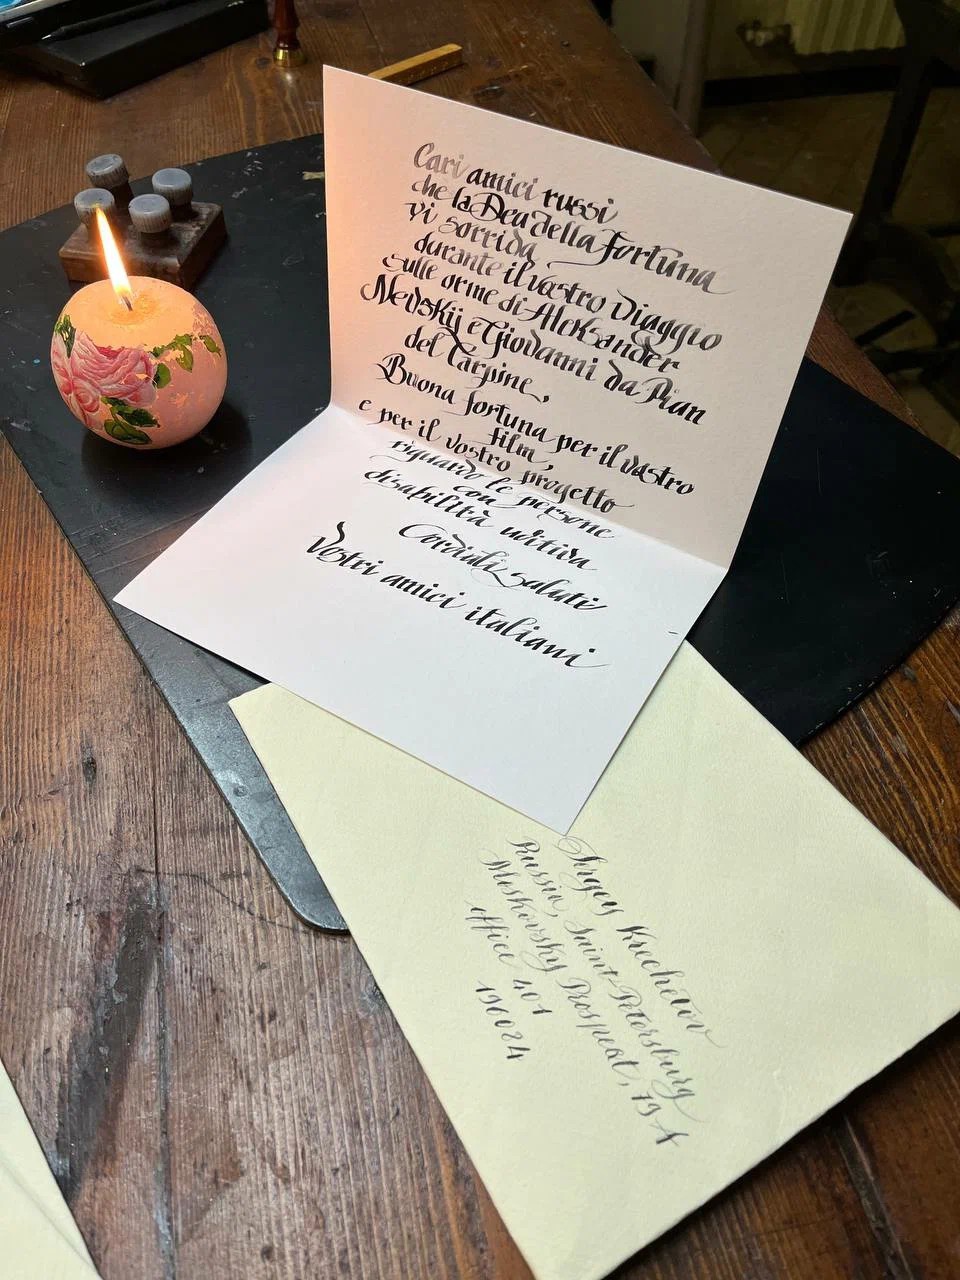 Cari amici russi
che la Dea della fortuna
vi sorrida
durante il vostro viaggio
sulle orme di Aleksander
Nevskij e Giovanni da Pian
del Carpine,
Buona fortuna per il vostro
film,
e per il vostro progetto
riguardo le persone
con
disabilità uditiva
Cordiali saluti
Vostri amici italiani
Sergey Krechetov
Russia, Saint-Petersburg
Moskovsky Prospekt, 79 A
office 401
196024